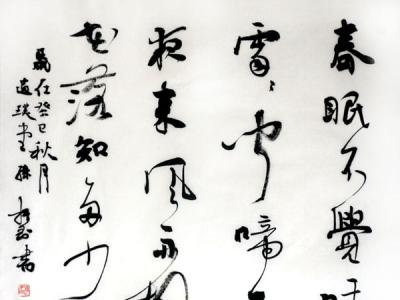 春眠不覺
處々聞啼
夜来風雨
花落知多少
歲在癸巳秋月
書